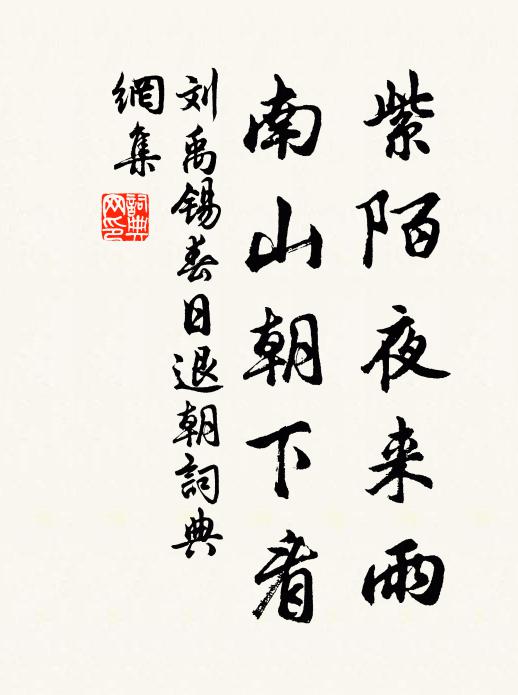 紫陌夜来雨
南山朝下看
刘禹锡春日退朝詞典
網集
詞典
网印